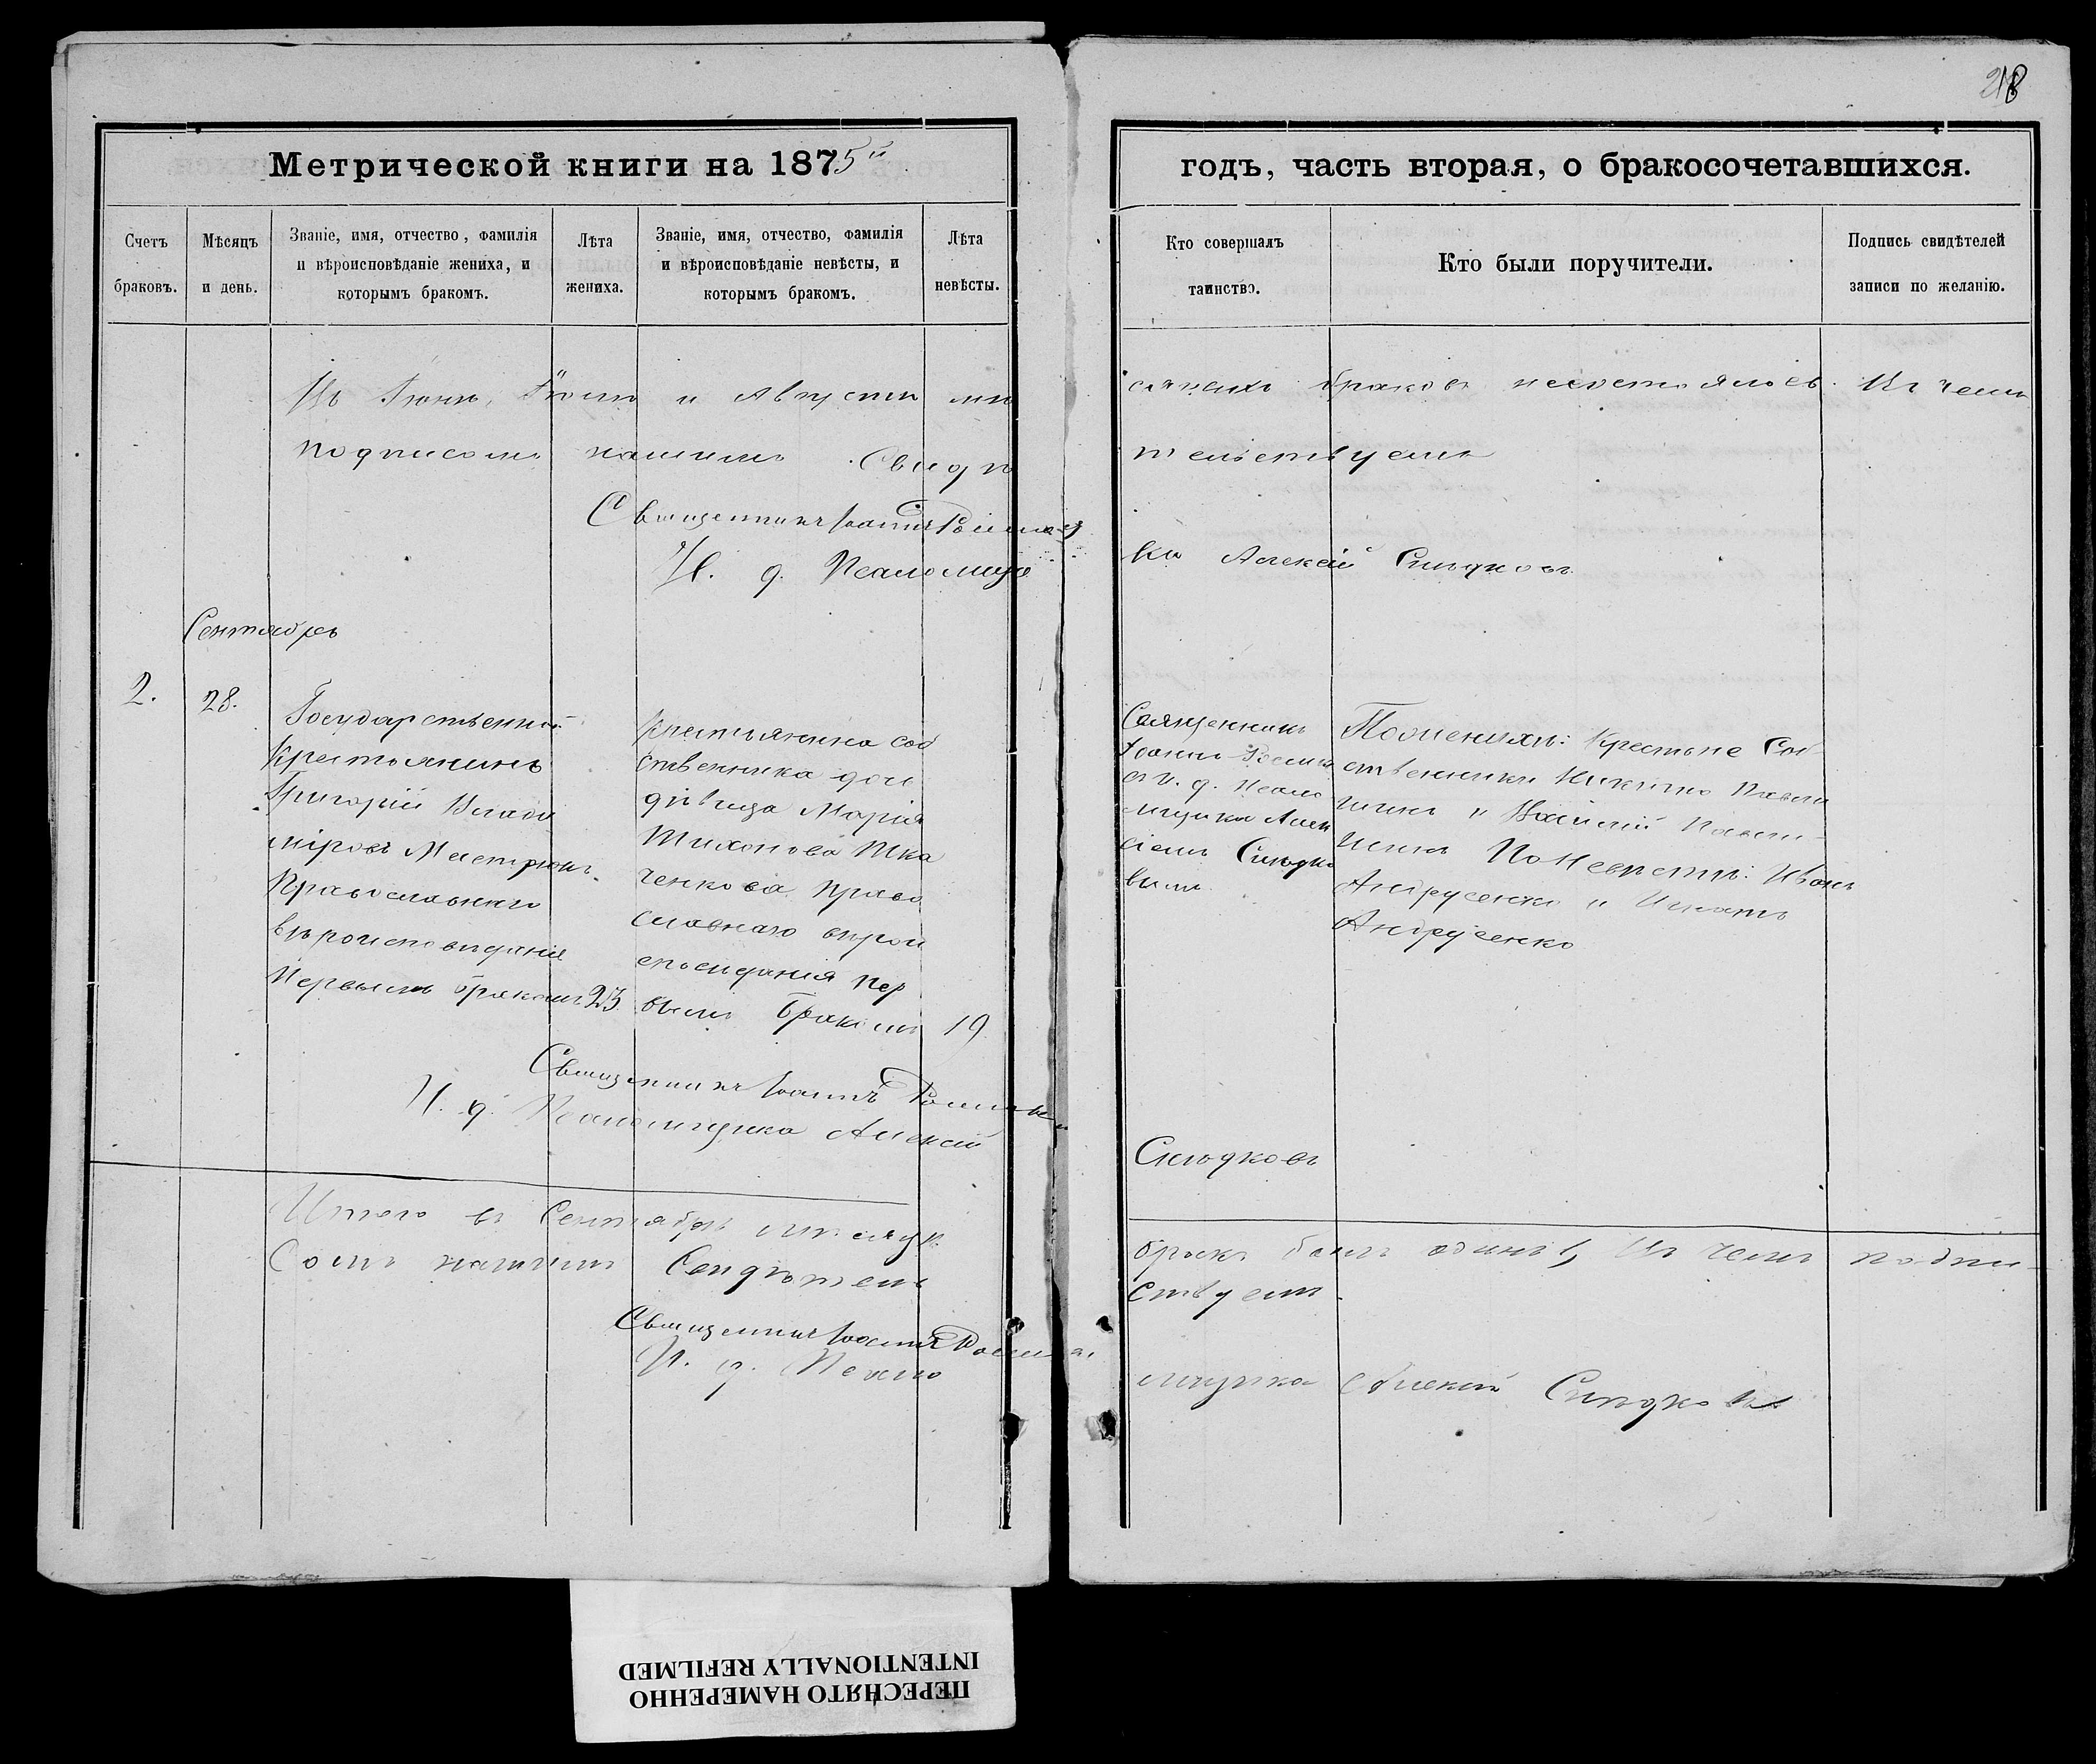 218
Метрической книги на 1875й
годъ, часть вторая, о бракосочетавшихся.
Счетъ
браковъ.
Мѣсяцъ
и день.
Званіе, имя, отчество, фамилія
и вѣроисповѣданіе жениха, и
которымъ бракомъ.
Лѣта
жениха.
Званіе, имя, отчество, фамилія
и вѣроисповѣданіе невѣсты, и
которымъ бракомъ.
Лѣта
невѣсты.
Кто совершалъ
таинство.
Кто были поручители.
Подпись свидѣтелей
записи по желанію.
Въ Іюнѣ, Іюлѣ и Августѣ мѣ
сяцахъ браковъ несостоялось. Въ чемъ
подписомъ нашимъ Свидѣ
тельствуемъ
Священникъ Іоаннъ
И. д. Псаломщи
ка Алексѣй Слюдковъ
Сентябрь
2.
28.
Государственный
Крестьянинъ
Григорій Влади
міровъ
Православнаго
вѣроисповѣданія
Первымъ бракомъ
23.
Крестьянина соб
ственника дочь
дѣвица Марія
Тихонова Тка
ченкова Право
славнаго вѣрои
сповѣданія пер
вымъ бракомъ
19.
Священникъ
Іоаннъ
съ и. д. Псало
мщика Алек
сѣемъ Слюдко
вымъ
По женихѣ: Крестьяне Соб
ственники Никита
и Василій
По Невѣстѣ: Иванъ
Андрусенко и Игнатъ
Андрусенко
Священникъ Іоаннъ
И. д. Псаломщика Алексѣй
Слюдковъ
Итого въ Сентябрѣ мѣсяцѣ
бракъ былъ одинъ 1, Въ чемъ подпи-
сомъ нашимъ Свидѣтель
ствуемъ.
Священникъ Іоаннъ
И. д. Псало
мщика Алексѣй Слюдковъ
ПЕРЕСНЯТО НАМЕРЕННО
INTENTIONALLY REFILMED